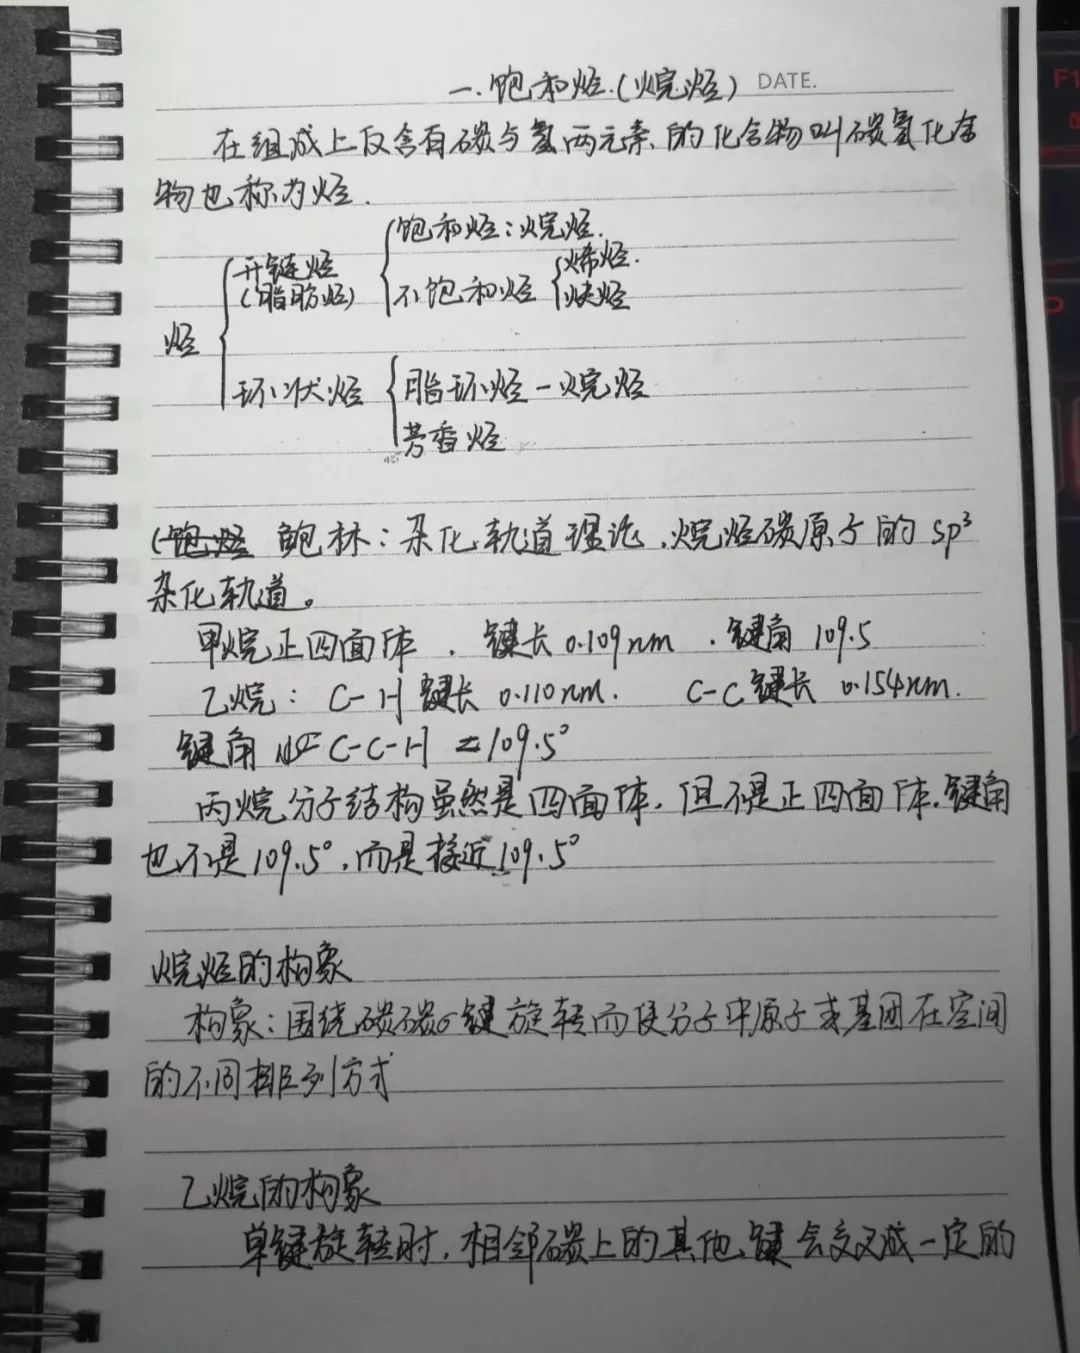 一.饱和烃.(烷烃) DATE.
在组成上仅含有碳与氢两元素的化合物叫碳氢化合
物也称为烃.
烃 { 开链烃 (脂肪烃) { 饱和烃:烷烃.
不饱和烃 { 烯烃.
炔烃
环状烃 { 脂环烃-烷烃
芳香烃
鲍林:杂化轨道理论,烷烃碳原子的sp³
杂化轨道。
甲烷正四面体.键长0.109nm.键角109.5
乙烷:C-H键长0.110nm. C-C键长0.154nm.
键角 C-C-H =109.5°
丙烷分子结构虽然是四面体,但不是正四面体.键角
也不是109.5°,而是接近109.5°
烷烃的构象
构象:围绕碳碳σ键旋转而使分子中原子或基团在空间
的不同排列方式
乙烷的构象
单键旋转时,相邻碳上的其他键会交叉成一定的
F1